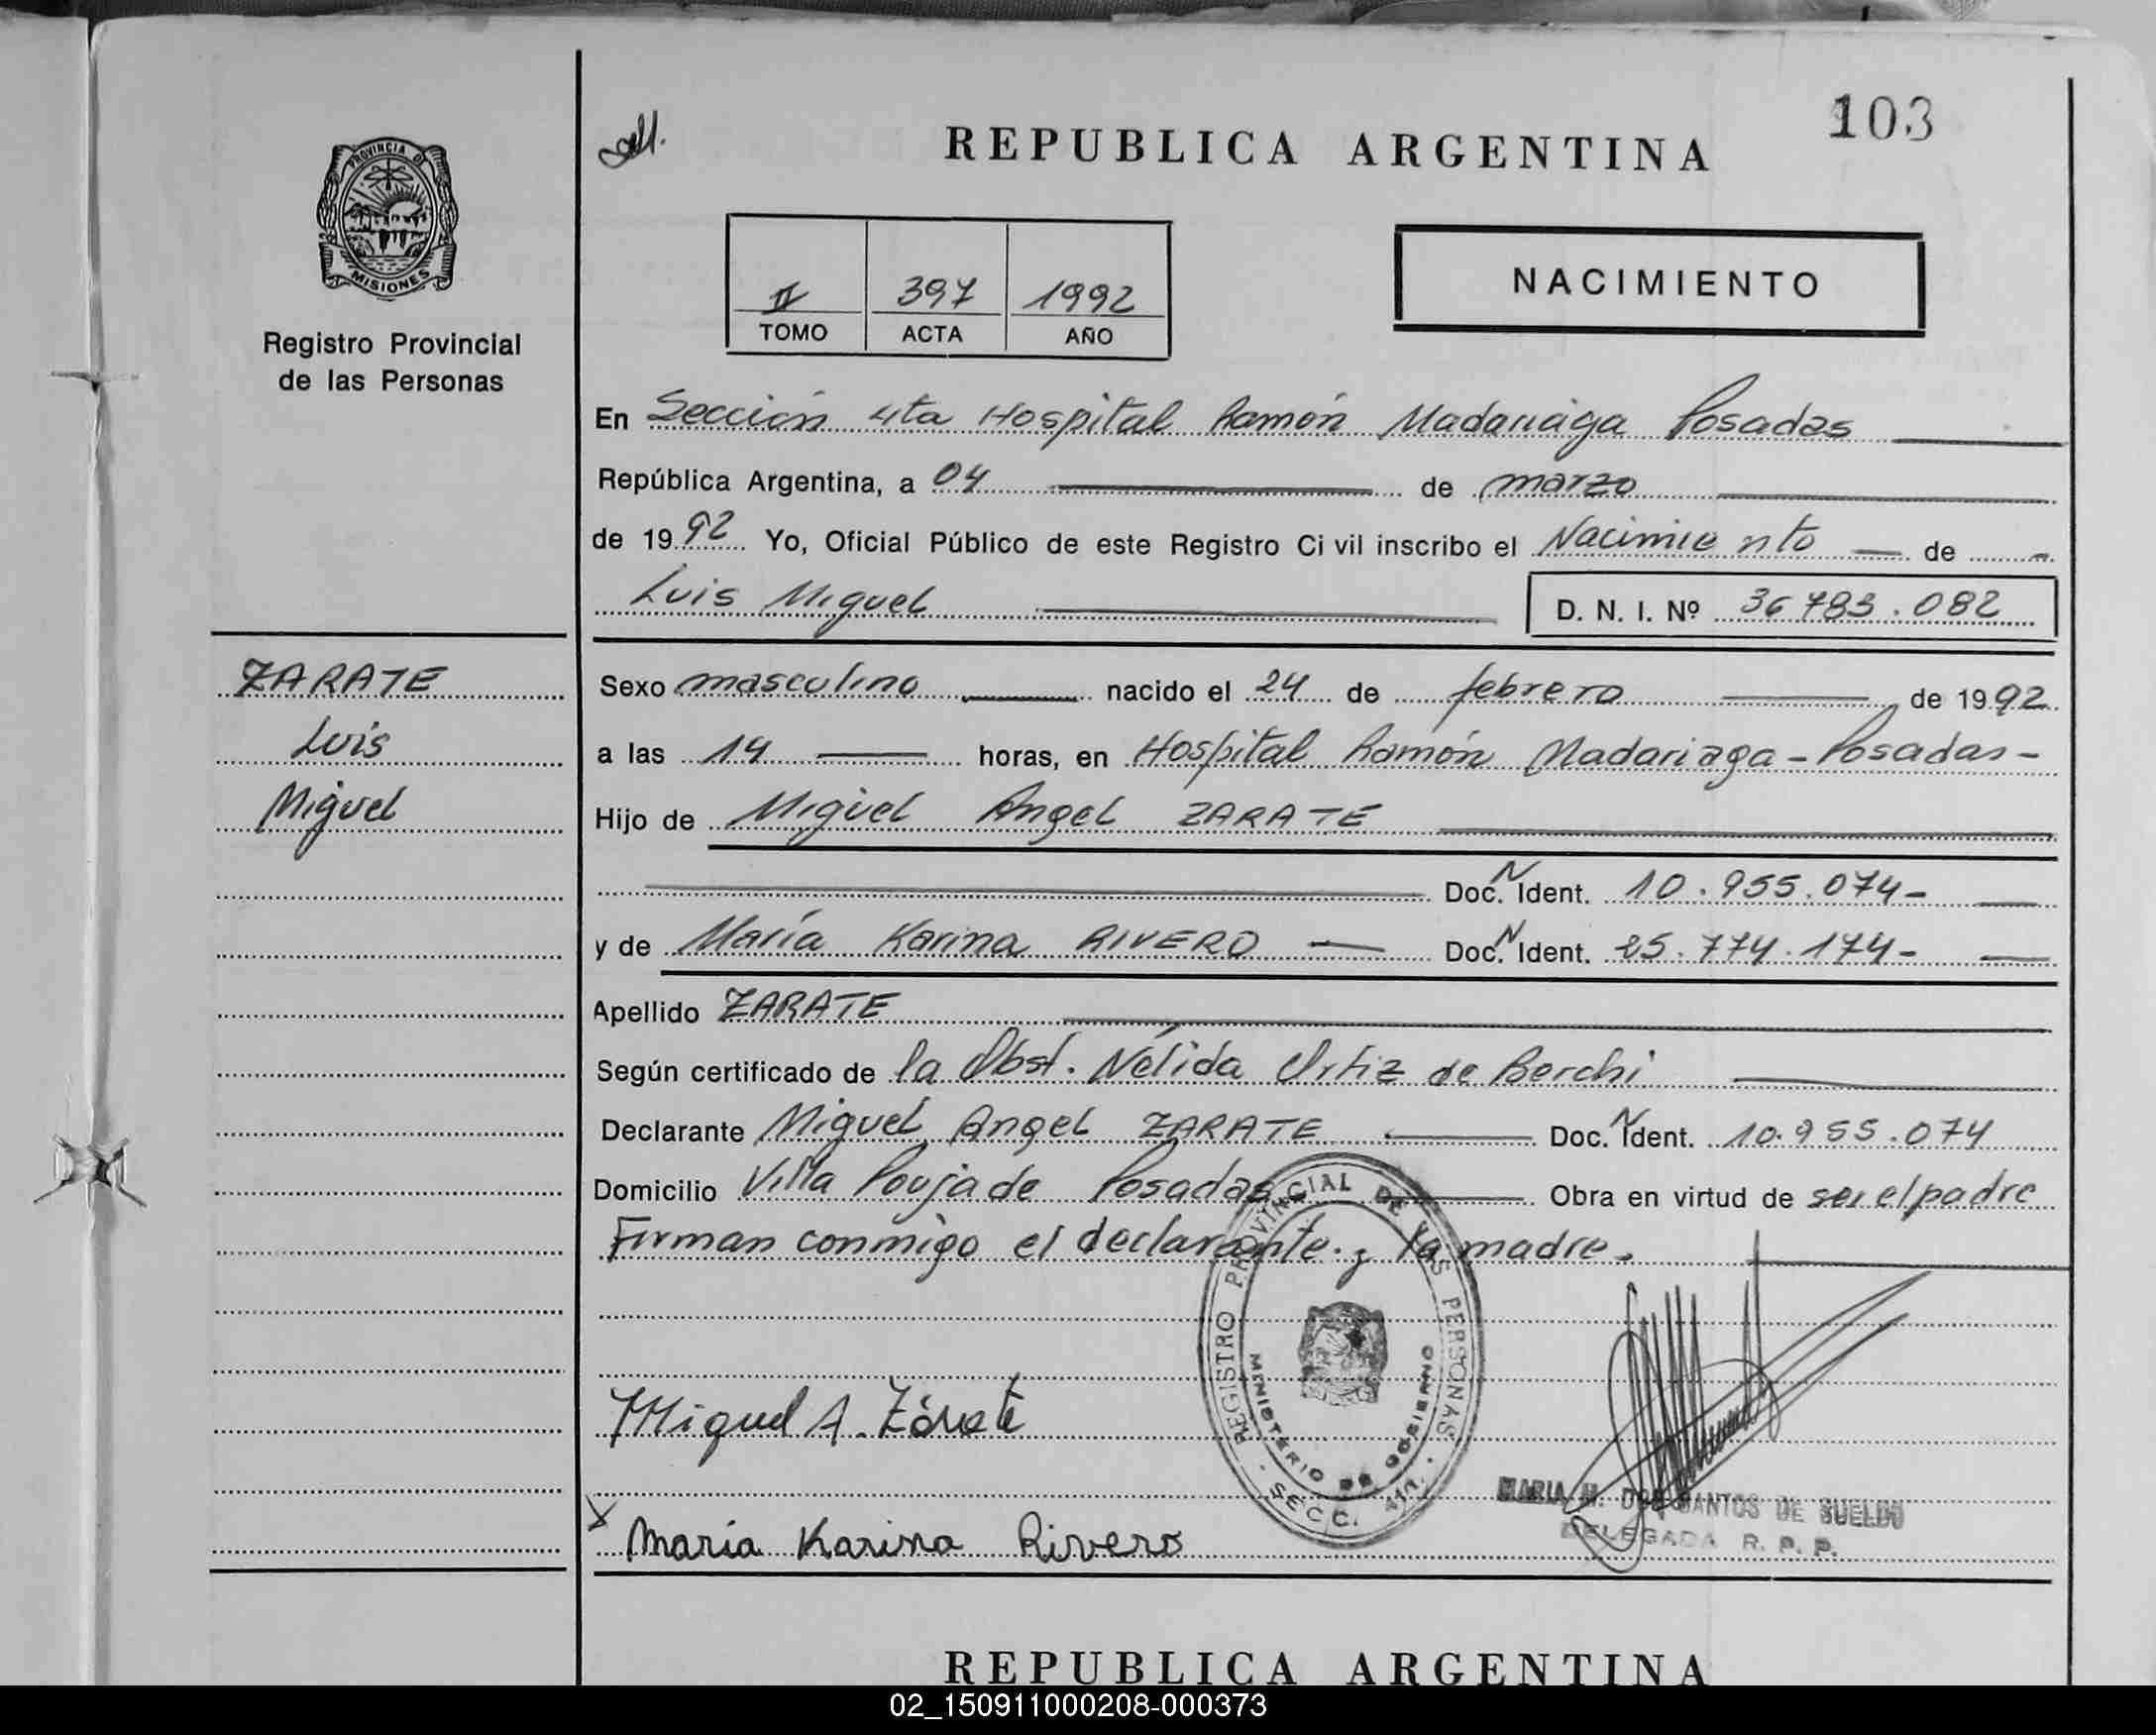 103
REPUBLICA ARGENTINA
PROVINCIA D
MISIONES
Registro Provincial
de las Personas
II 397 1992
TOMO ACTA AÑO
NACIMIENTO
En Sección 4ta Hospital Ramón Madariaga Posadas
República Argentina, a 04 de marzo
de 1992 Yo, Oficial Público de este Registro Civil inscribo el Nacimiento de
Luis Miguel D. N. I. Nº 36783.082
ZARATE
Luis
Miguel
Sexo masculino nacido el 24 de febrero de 1992
a las 14 horas, en Hospital Ramón Madariaga - Posadas -
Hijo de Miguel Angel ZARATE
Doc. N Ident. 10.955.074-
y de María Karina RIVERO Doc. N Ident. 25.774.174-
Apellido ZARATE
Según certificado de la Obst. Nélida Ortiz de Berchi
Declarante Miguel Angel ZARATE Doc. N Ident. 10.955.074
Domicilio Villa Poujade Posadas Obra en virtud de ser el padre
Firman conmigo el declarante y la madre.
REGISTRO PROVINCIAL DE LAS PERSONAS
MINISTERIO DE GOBIERNO
SECC. 4ta.
Miguel A. Zárate
MARIA M. DOS SANTOS DE SUELDO
DELEGADA R. P. P.
x María Karina Rivero
REPUBLICA ARGENTINA
02_150911000208-000373